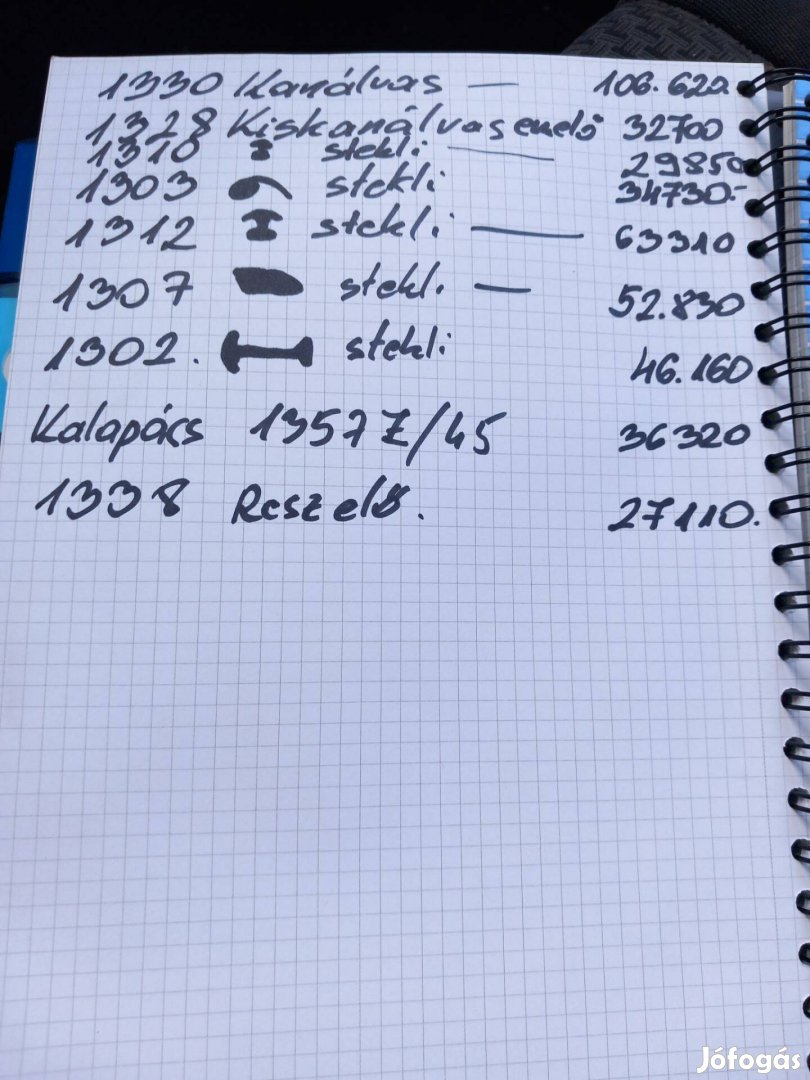 1330 Kanálvas — 106.620
1328 Kiskanálvas emelő 32700
1310 stekli — 29850
1303 stekli 34730.-
1312 stekli — 63310
1307 stekl. — 52.830
1302. stekli 46.160
Kalapács 1357 Z/45 36320
1338 Reszelő. 27110.
Jófogás